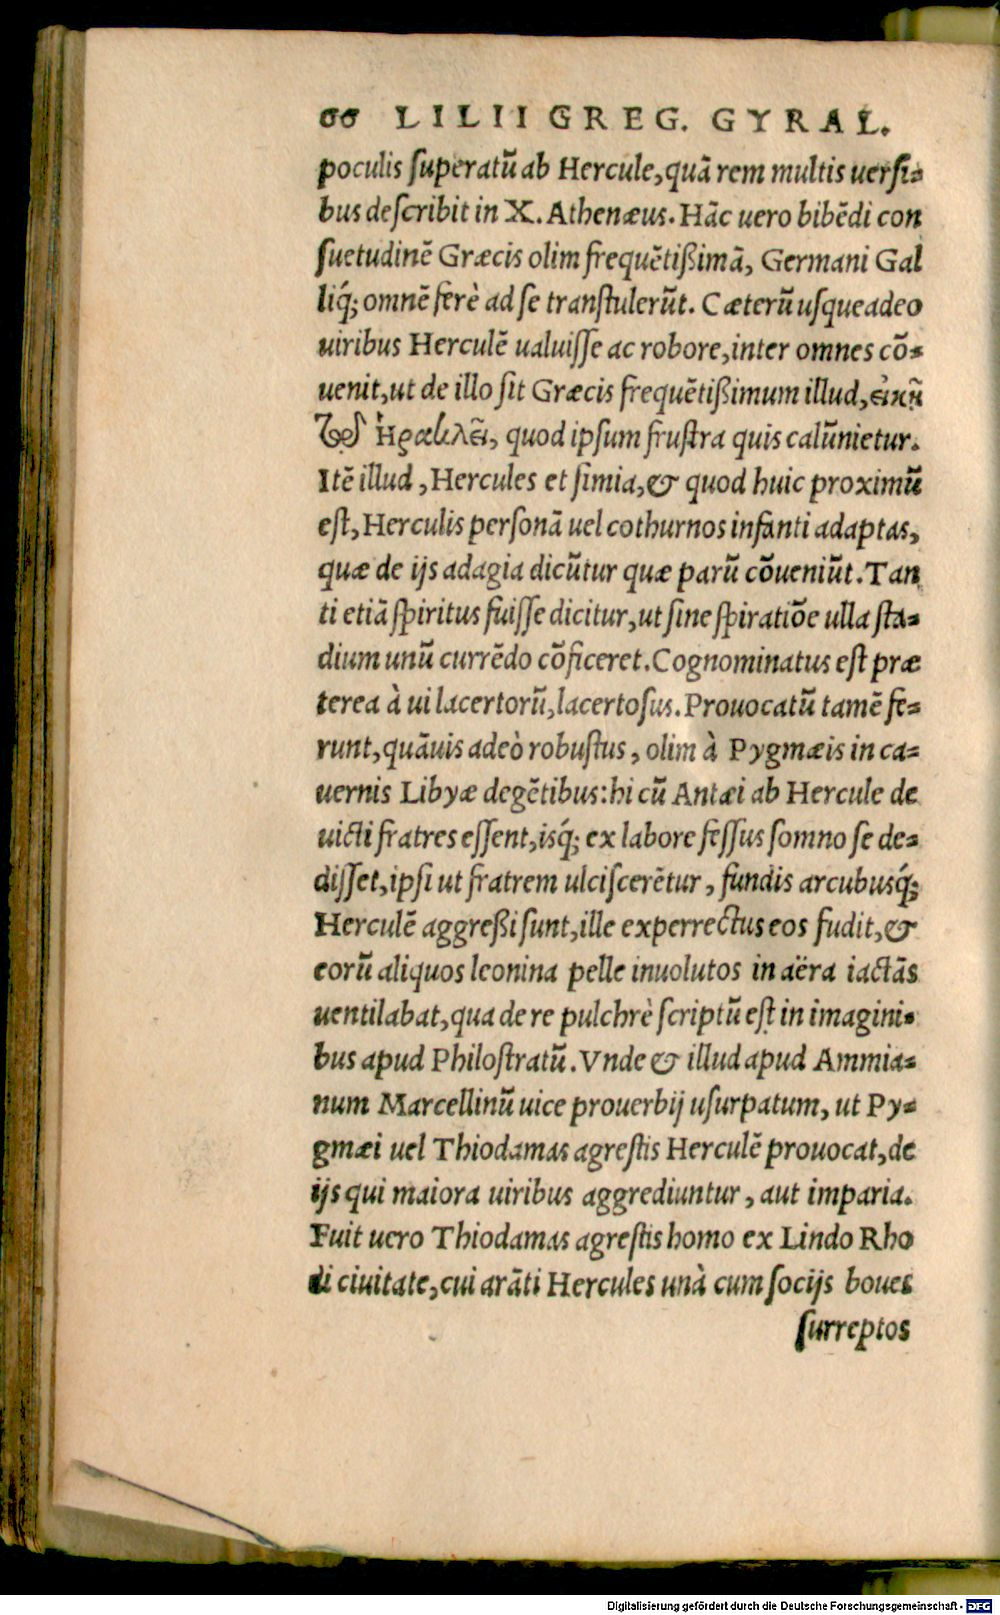 66 LILII GREG. GYRAL.
poculis ſuperatũ ab Hercule, quã rem multis uerſi-
bus deſcribit in X. Athenæus. Hãc uero bibẽdi con
ſuetudinẽ Græcis olim frequẽtißimã, Germani Gal
liq́; omnẽ ferè ad ſe tranſtulerũt. Cæterũ uſqueadeo
uiribus Herculẽ ualuiſſe ac robore, inter omnes cõ-
uenit, ut de illo ſit Græcis frequẽtißimum illud,
quod ipſum fruſtra quis calũnietur.
Itẽ illud, Hercules et ſimia, & quod huic proximũ
eſt, Herculis perſonã uel cothurnos infanti adaptas,
quæ de ijs adagia dicũtur quæ parũ cõueniũt. Tan
ti etiã ſpiritus fuiſſe dicitur, ut ſine ſpiratiõe ulla ſta-
dium unũ currẽdo cõficeret. Cognominatus eſt præ
terea à ui lacertorũ, lacertoſus. Prouocatũ tamẽ fe-
runt, quãuis adeò robuſtus, olim à Pygmæis in ca-
uernis Libyæ degẽtibus: hi cũ Antæi ab Hercule de
uicti fratres eſſent, isq́; ex labore feſſus ſomno ſe de-
diſſet, ipſi ut fratrem ulciſcerẽtur, fundis arcubusq́;
Herculẽ aggreßi ſunt, ille experrectus eos fudit, &
eorũ aliquos leonina pelle inuolutos in aëra iactãs
uentilabat, qua de re pulchrè ſcriptũ eſt in imagini-
bus apud Philoſtratũ. Vnde & illud apud Ammia-
num Marcellinũ uice prouerbij uſurpatum, ut Py-
gmæi uel Thiodamas agreſtis Herculẽ prouocat, de
ijs qui maiora uiribus aggrediuntur, aut imparia.
Fuit uero Thiodamas agreſtis homo ex Lindo Rho
di ciuitate, cui arãti Hercules unà cum ſocijs boues
ſurreptos
Digitalisierung gefördert durch die Deutsche Forschungsgemeinschaft - DFG